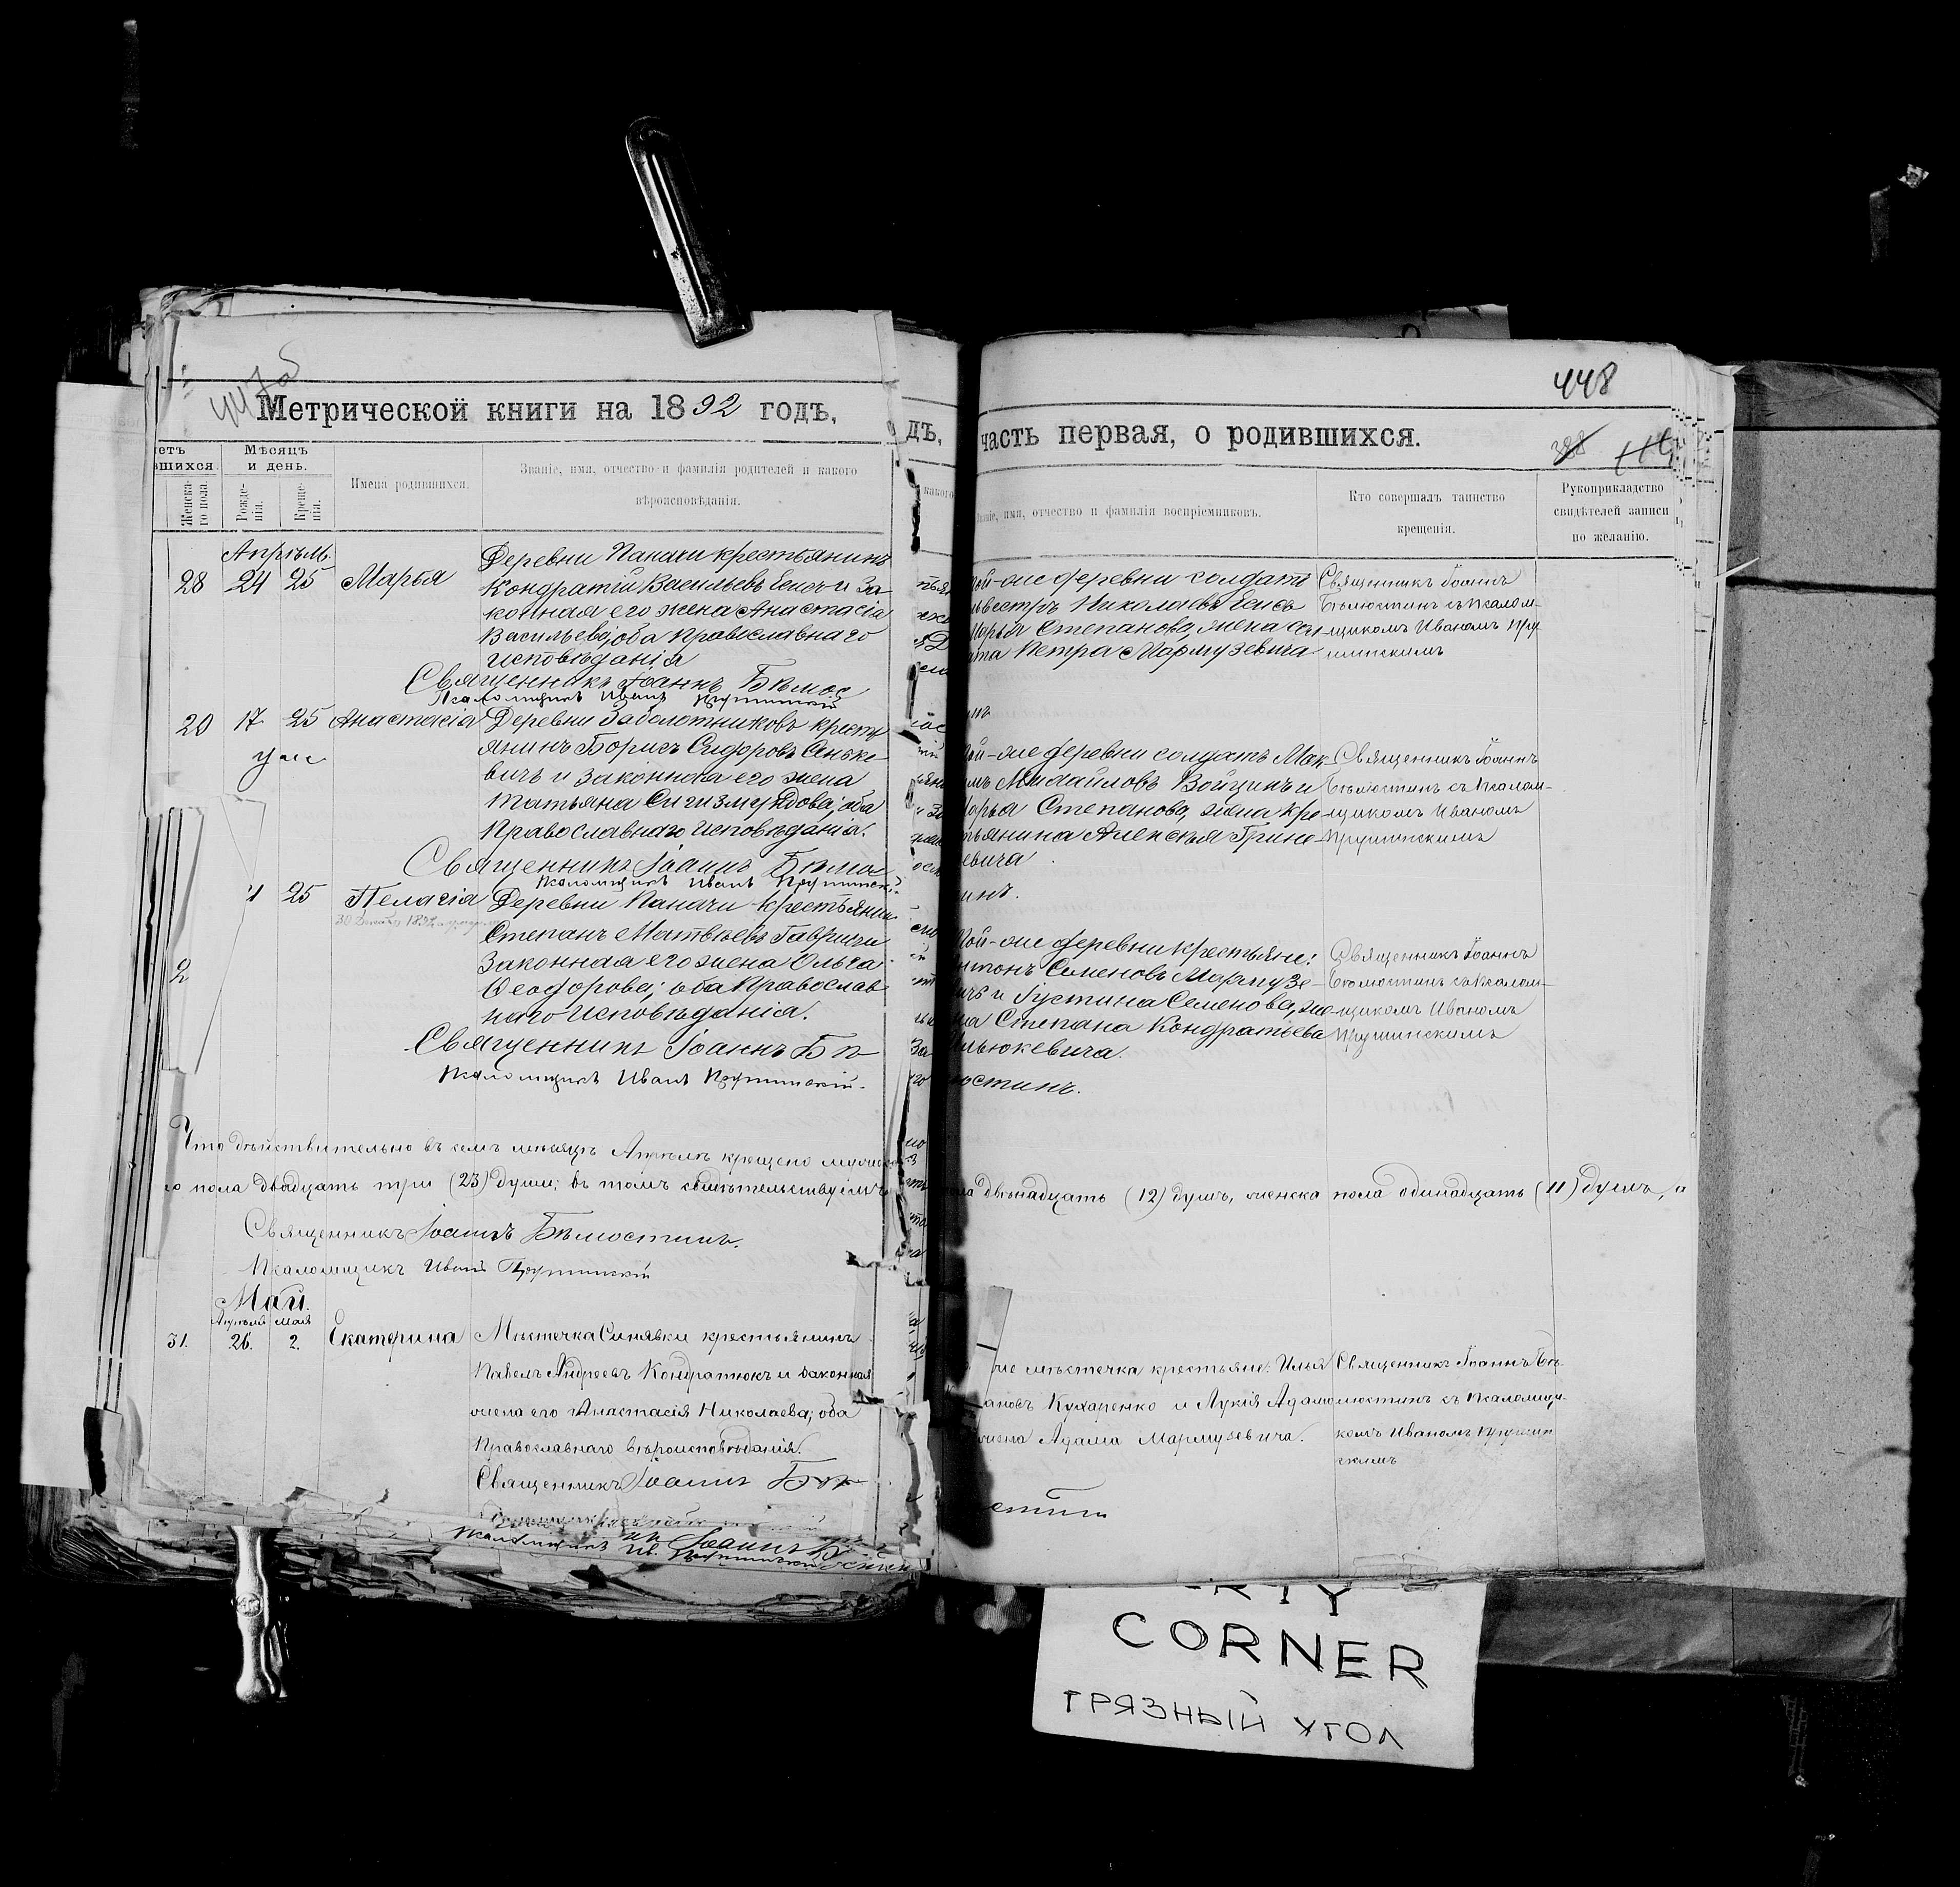 447об
Метрической книги на 1892 годъ,
Мѣсяцъ
и день.
Женска-
го пола.
Рожде-
нія.
Креще-
нія.
Имена родившихся.
Званіе, имя, отчество и фамилія родителей и какого
вѣроисповѣданія.
Апрѣль
28 24 25 Марья
Деревни Паначи крестьянинъ
Кондратій Васильевъ и за-
конная его жена Анастасія
Васильева, оба православнаго
исповѣданія
Священникъ Іоаннъ Бѣлюс
Псаломщикъ Иванъ
20 17 25 Анастасія
Деревни Заболотниковъ кресть-
янинъ Борисъ Сидоровъ Сеньке-
вичъ и законная его жена
Татьяна Сигизмундова; оба
Православнаго исповѣданія.
Священникъ Іоаннъ Бѣлю
Псаломщикъ Иванъ
25 Пелагія
Деревни Паначи крестьянин
Степанъ Матвѣевъ и
Законная его жена Ольга
Ѳеодорова; оба Православ-
наго Исповѣданія.
2
Священникъ Іоаннъ Бѣ
Псаломщикъ Иванъ
Что дѣйствительно въ семъ мѣсяцѣ Апрѣлѣ крещено
го пола двадцать три (23) души; въ томъ свидѣтельствуемъ
Священникъ Іоаннъ Бѣлюстинъ.
Псаломщикъ Иванъ
Май.
Апрѣля Мая
31. 26. 2. Екатерина
Мѣстечка Синявки крестьянинъ
Павелъ Андреевъ Кондратюкъ и законная
жена его Анастасія Николаева; оба
Православнаго вѣроисповѣданія.
Священникъ Іоаннъ Бѣ
Псаломщикъ Ив.
дъ,
какого
448
часть первая, о родившихся.
Званіе, имя, отчество и фамилія воспріемниковъ.
Кто совершалъ таинство
крещенія.
Рукоприкладство
свидѣтелей записи
по желанію.
той-же деревни солдатъ
Николаевъ
Марья Степанова, жена сол-
дата Петра Мармузевича
Священникъ Іоаннъ
Бѣлюстинъ съ псалом-
щикомъ Иваномъ
той-же деревни солдатъ Мак-
имъ Михайловъ Войцикъ и
Марья Степанова, жена кре-
тьянина Алексѣя Грине-
евича
Священникъ Іоаннъ
Бѣлюстинъ съ Псалом-
щикомъ Иваномъ
инъ.
той-же деревни крестьяне:
нтонъ Семеновъ Мармузе-
ичъ и Іустина Семенова, же-
на Степана Кондратьева
ильюкевича.
Священникъ Іоаннъ
Бѣлюстинъ съ Псалом-
щикомъ Иваномъ
юстинъ.
ола двѣнадцать (12) душъ, женска пола одинадцать (11) душъ, и
же мѣстечка крестьяне: Илья
ановъ Кухаренко и Лукія Адамо
жена Адама Мармузевича.
Священникъ Іоаннъ Бѣ-
люстинъ съ Псаломщи-
комъ Иваномъ
скимъ
CORNER
ГРЯЗНЫЙ УГОЛ